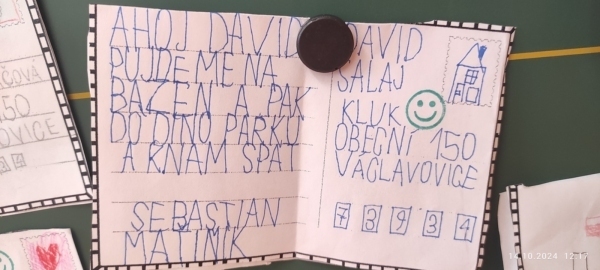 AHOJ DAVID
PŮJDEME NA
BAZÉN A PAK
DO DINO PARKU
A KNÁM SPÁT
SEBASTIAN
MATÝNÍK
DAVID
SALAJ
KLUK
OBECNÍ 150
VÁCLAVOVICE
7 3 9 3 4
ČOVÁ
150
OVICE
14.10.2024 12:17